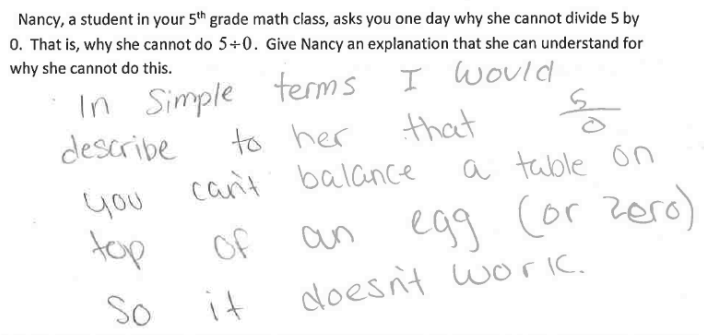 Nancy, a student in your 5th grade math class, asks you one day why she cannot divide 5 by
0. That is, why she cannot do 5÷0. Give Nancy an explanation that she can understand for
why she cannot do this.
In Simple terms I would
describe to her that 5/0
you can't balance a table on
top of an egg (or zero)
So it doesn't work.